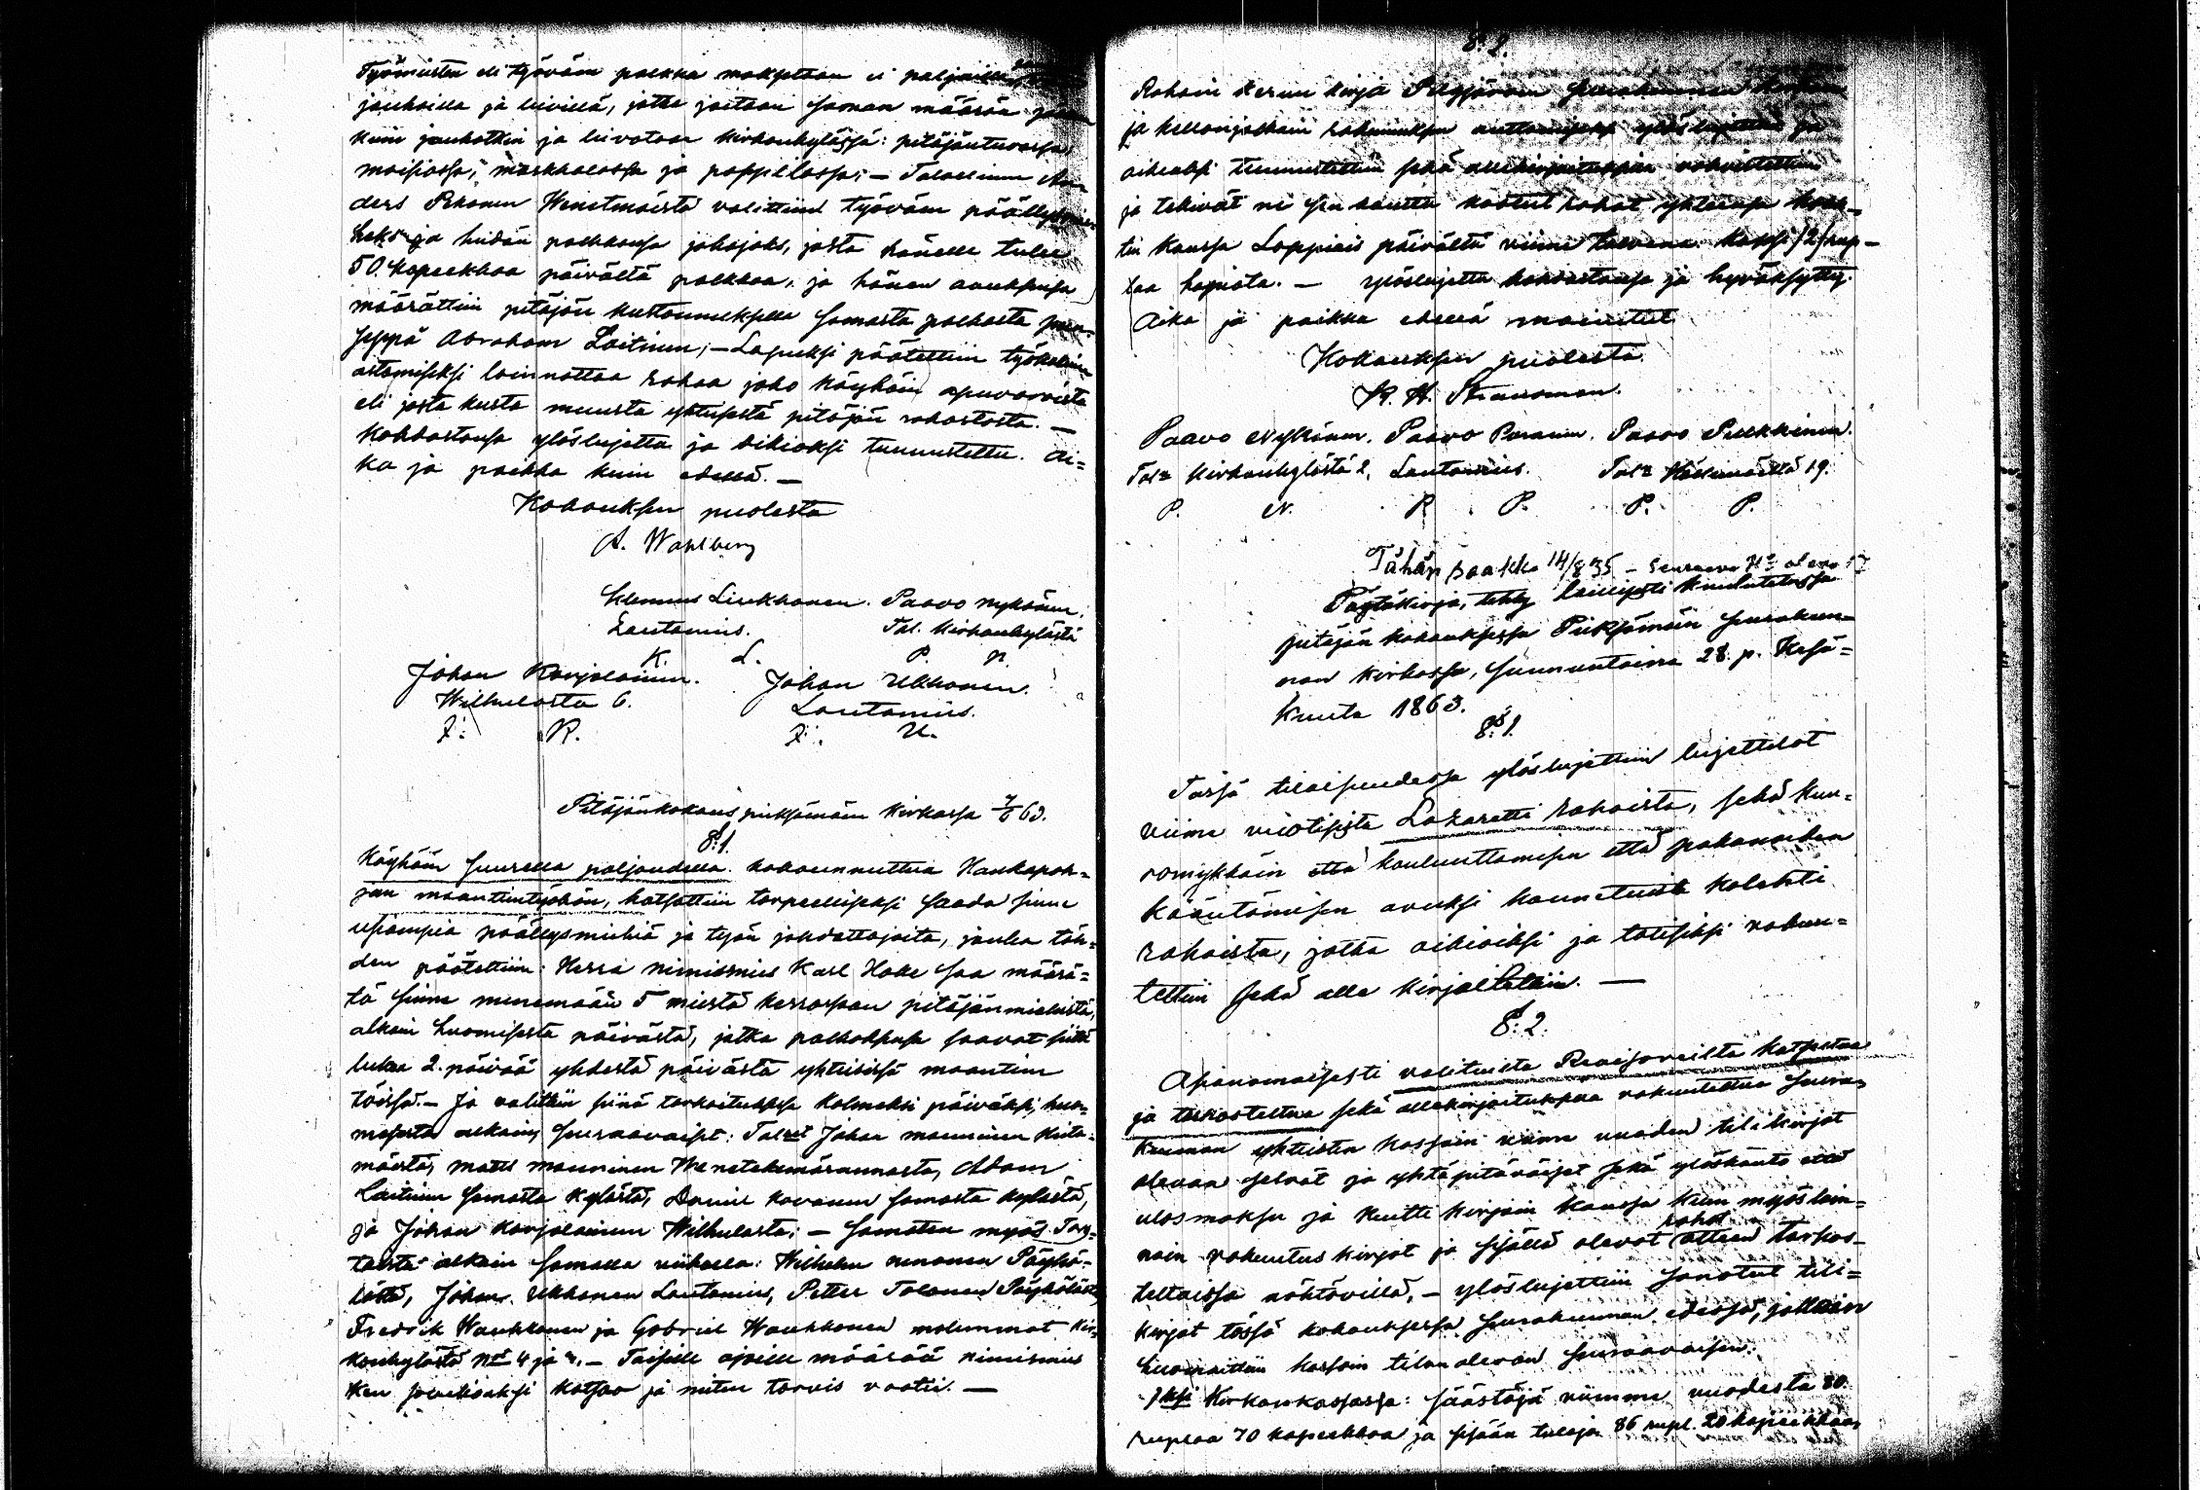 Työmiesten eli työväen palkka maksetaan ei paljailla
jauhoilla ja leivillä, jotka jaetaan saman määrän
kuin jauhotkin ja leivotaan kirkonkylässä: pitäjäntuvassa,
moisiossa, markkalassa ja pappilassa; — Talollinen An-
ders Pekonen Wenetmäestä valittiin työväen päällysmie-
heksi ja heidän palkkansa johajaks, josta hänelle tulee
50. kopeekkaa päivältä palkkaa, ja hänen avuksensa
määrättiin pitäjän kustannuksella samasta palkasta
seppä Abraham Laitinen; — Lopuksi päätettiin työkaluin
ostamiseksi lainattaa rahaa joko köyhäin apuvaroista
eli josta kusta muusta yhteisestä pitäjän rahastosta. —
Kohdastansa ylösluettu ja oikiaksi tunnustettu. Ai=
ka ja paikka kuin edellä. —
Kokouksen puolesta
A. Wahlberg
Klemens Liukkonen. Paavo Nykänen,
Lautamies. Tal. Kirkonkylästä
K. L. P. N.
Johan Karjalainen. Johan Ukkonen.
Wilhulasta 6. Lautamies.
J. K. J. U.
Pitäjänkokous pieksämäen kirkossa 7/6 63.
§.1.
Köyhäin suurella paljoudella kokounnuttua Haukapoh=
jan maantientyöhön, katsottiin tarpeelliseksi saada sinne
useampia päällysmiehiä ja työn johdattajoita, jonka täh=
den päätettiin: Herra nimismies Karl Hoke saa määrä=
tä sinne enemmän 5 miestä kerrassaan pitäjänmiehistä,
alkain huomisesta päivästä, jotka palkakseen saavat siitä
lukea 2. päivää yhdestä päivästä yhteisissä maantien
töissä. — Ja valittiin siinä tarkoituksessa kolmeksi päiväksi, huo=
misesta alkain, seuraavaiset: Talset Johan manninen Kuta=
mäestä, matts manninen Wenetekemäsuunnasta, Adam
Laitinen samasta kylästä, Daniel kovanen samasta kylästä,
ja Johan karjalainen Wilhulasta; — samoten myös Tors=
taista alkain samalla viikolla: Wilhelm nenonen Pöyhö=
lästä, Johan Ukkonen Lautamies, Petter Tolonen Pöyhölästä,
Fredrik Waukkonen ja Gabriel Waukkonen molemmat kir=
konkylästä No 4 ja 9. — Toisille ajoille määrää nimismies
ken soveliaaksi katsoo ja miten tarvis vaatii. —
§. 2.
Rahain keruu kirja Pielisjärven seurakunnan kirkon
ja kellonjalkain rakennuksen auttamiseksi ylösluettiin ja
oikeaksi tunnustettiin sekä allekirjoituksilla vahvistettiin
ja tekivät ne sen kautta kootut rahat yhteensä kolek=
tin kanssa Loppiais päivältä viime talvena kaksi /2/ rup=
laa hopiata. — Ylösluettu kohdastansa ja hyväksytty.
Aika ja paikka edellä mainitut
Kokouksen puolesta
K. H. Strandman.
Paavo Nykänen. Paavo Paranen. Paavo Pulkkinen.
Tals Kirkonkylästä 2. Lautamies. Tals Häkkimäellä 19.
P. N. P. P. P. P.
Tähän saakka 14/8 35 — seuraava
Pöytäkirja, tehty laillisesti kuulutetussa
pitäjän kokouksessa Pieksämäen seurakun=
nan kirkossa, sunnuntaina 28. p. Kesä=
kuuta 1863.
§.1.
Tässä tilaisuudessa ylösluettiin luettelot
viime vuotisista Lasaretti rahoista, sekä kuu=
romykkäin että kouluuttamisen että pakanoiden
kääntämisen avuksi kannetuista kolehti
rahoista, jotka oikioiksi ja totisiksi vakuu=
tettiin sekä alle kirjoitettiin. —
§. 2.
Asianomaisesti valituista Reviisoreilta katsottua
ja tarkasteltua sekä allekirjoituksilla vakuutettua seura=
kunnan yhteisten kassain viime vuoden tilikirjat
olevan selvät ja yhtäpitäväiset sekä ylöskanto että
ulosmaksu ja kuitti kirjain kanssa kuin myös lai=
nain vakuutus kirjat ja sisällä olevat rahat olleen tarkas=
teltaissa nähtävillä, — ylösluettiin sanotut tili=
kirjat tässä kokouksessa seurakunnan edessä, jolloin
huomaittiin kassain tilan olevan seuraavaisen:
1ksi Kirkonkassassa: säästöjä viimme vuodesta 80.
ruplaa 70 kopeekkaa ja sisään tuloja 86 rupl. 20 kopeekkaa,